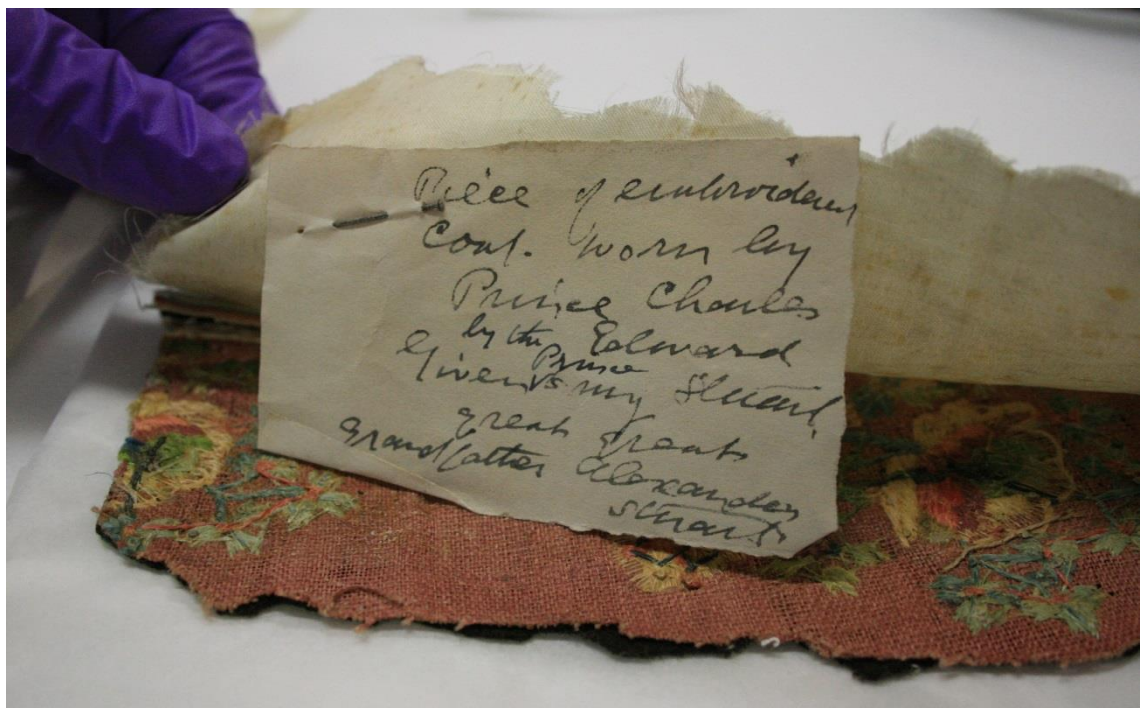 Piece of embroidery
Coat. worn by
Prince Charles
by the Edward
Prince
Given to my Stuart.
great great
Grandfather Alexander
Stuart